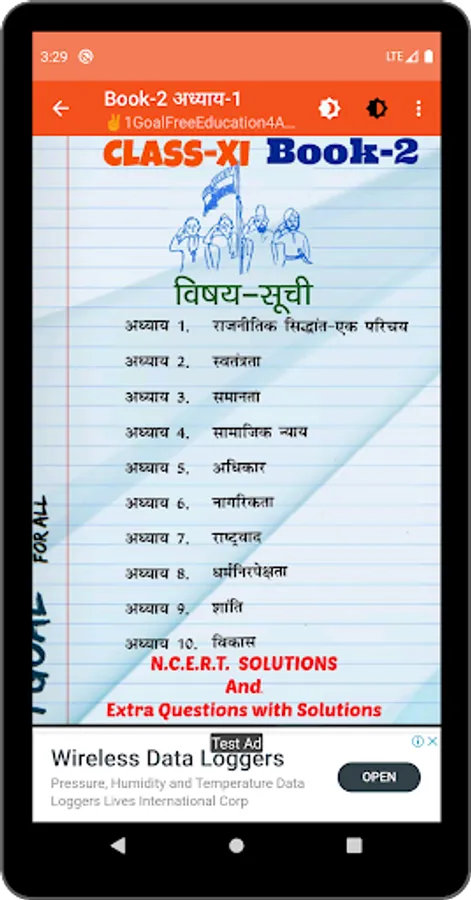 3:29 LTE
Book-2 अध्याय-1
✌1GoalFreeEducation4A...
CLASS-XI Book-2
विषय-सूची
अध्याय 1. राजनीतिक सिद्धांत-एक परिचय
अध्याय 2. स्वतंत्रता
अध्याय 3. समानता
अध्याय 4. सामाजिक न्याय
अध्याय 5. अधिकार
अध्याय 6. नागरिकता
अध्याय 7. राष्ट्रवाद
अध्याय 8. धर्मनिरपेक्षता
अध्याय 9. शांति
अध्याय 10. विकास
GOAL FOR ALL
N.C.E.R.T. SOLUTIONS
And
Extra Questions with Solutions
Test Ad
Wireless Data Loggers
Pressure, Humidity and Temperature Data
Loggers Lives International Corp
OPEN